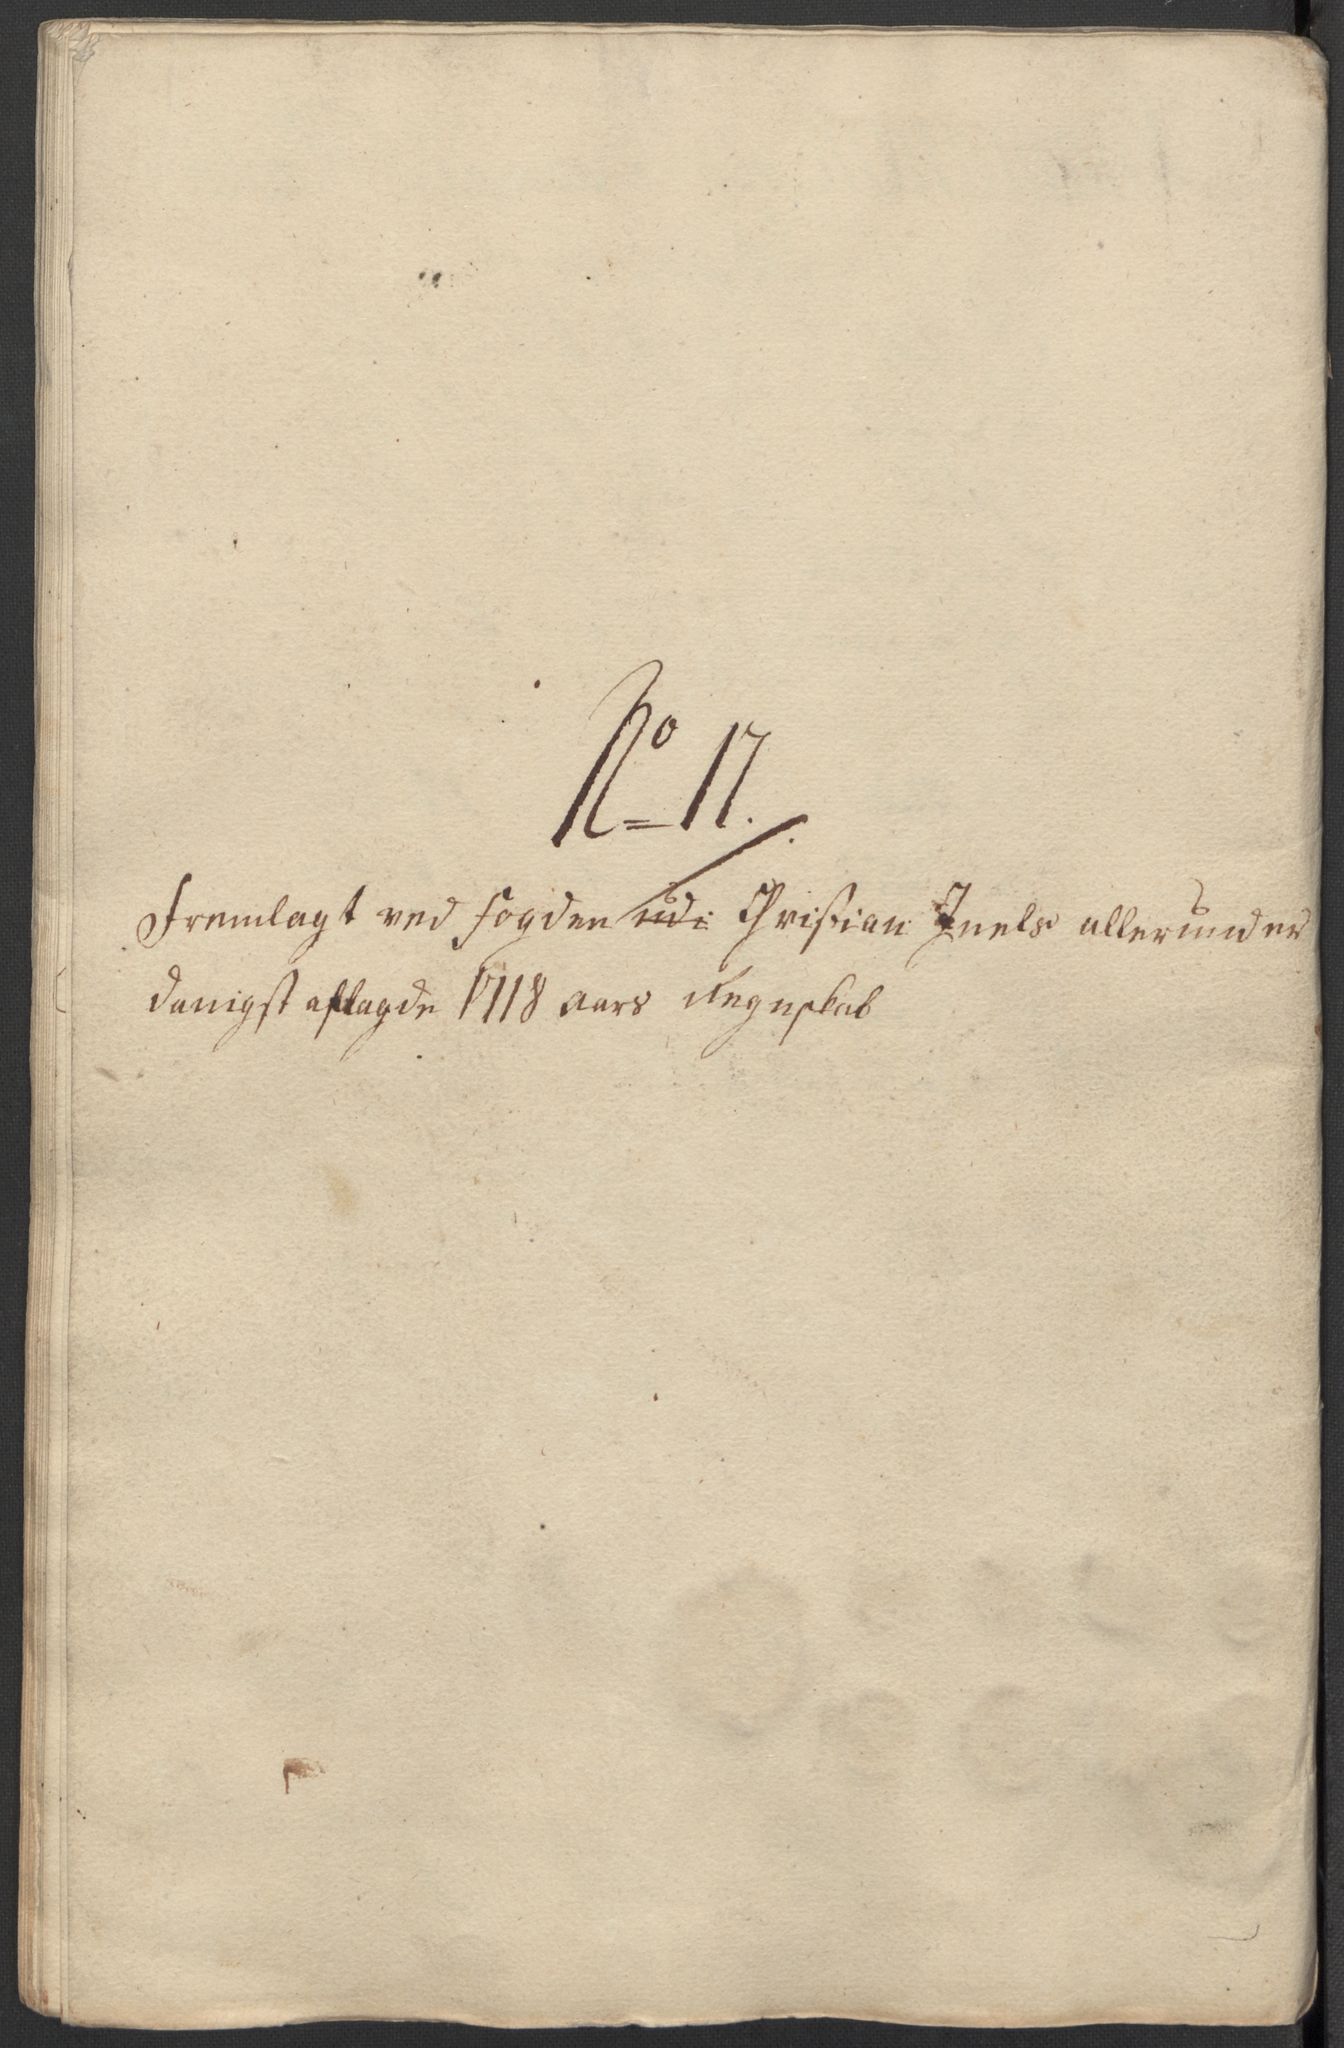 No 17.
Fremlagt ved fogden udi Christian Juels allerunder
danigst aflagde 1718 aars Regnskab